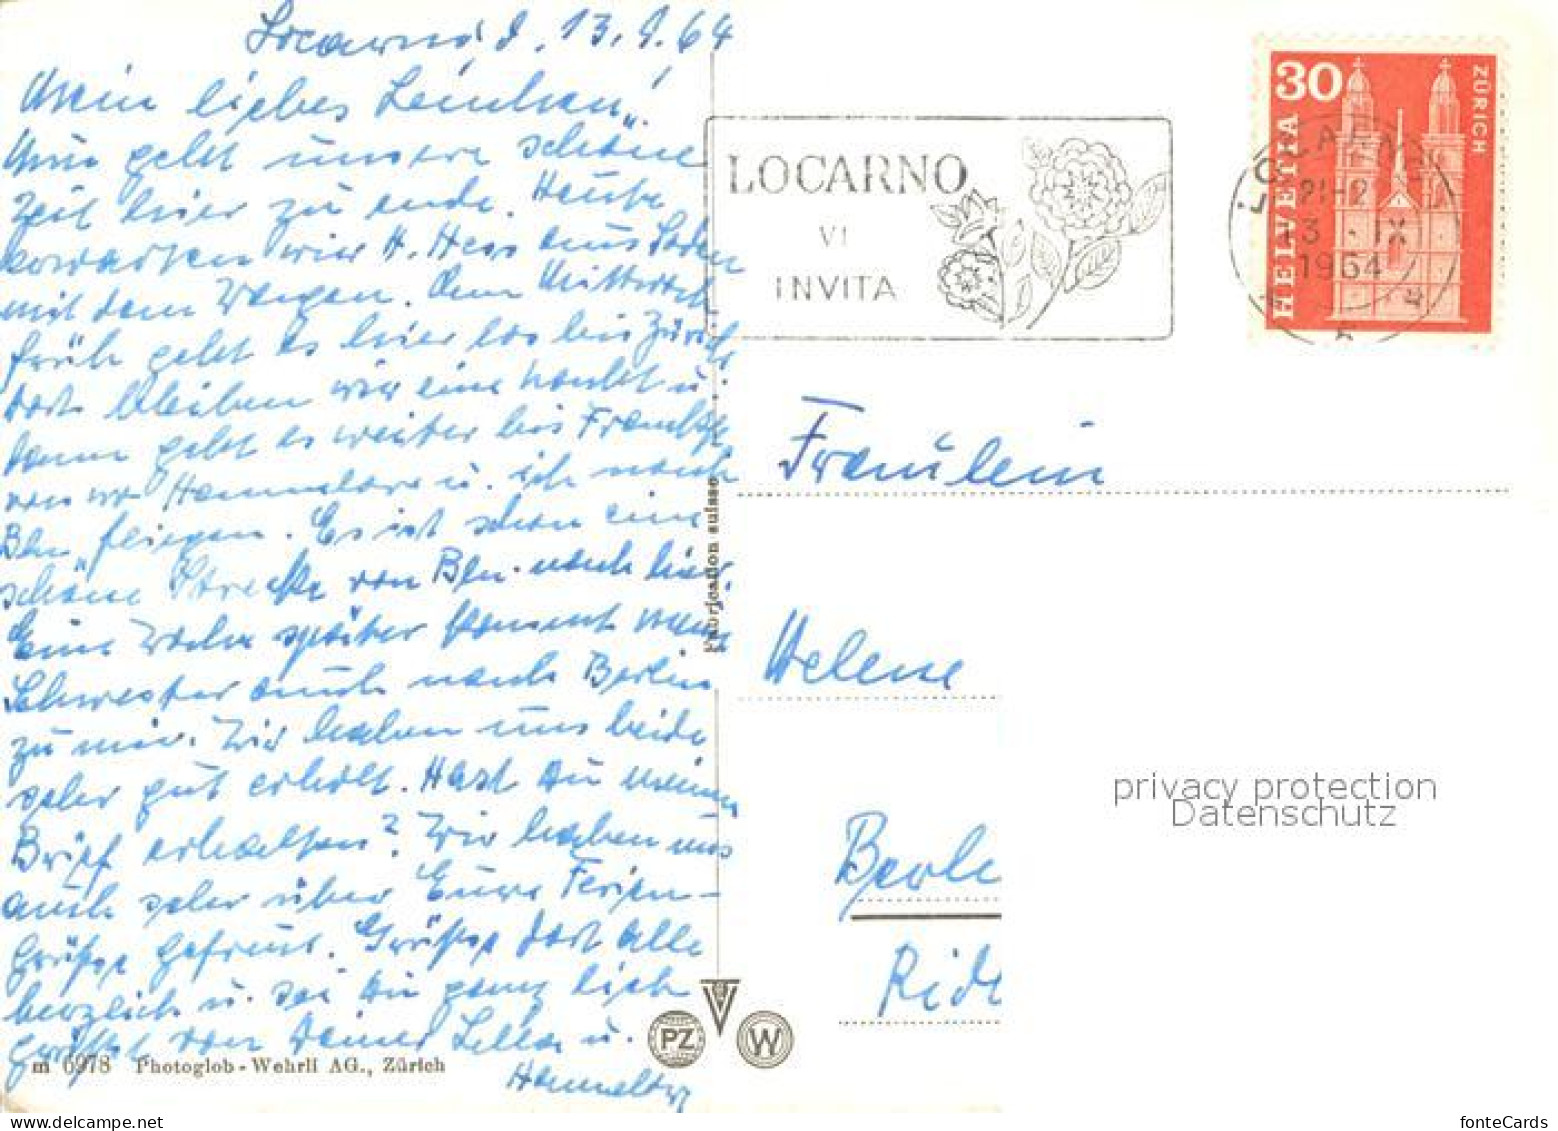 Locarno, d. 13.9.64
Mein liebes Lenchen!
Nun geht unsere schöne
Zeit hier zu ende. Heute
erwarten wir H. Hess aus
mit dem Wagen. Am Mittwoch
früh geht es hier los bis Zürich
dort bleiben wir eine Nacht u.
dann geht es weiter bis Frankft.
von wo Hannelore u. ich nach
Bln. fliegen. Es ist schon eine
schöne Strecke von Bln. nach hier.
Eine Woche später kommt meine
Schwester auch nach Berlin
zu mir. Wir haben uns beide
sehr gut erholt. Hast Du meinen
Brief erhalten? Wir haben uns
auch sehr über Eure Ferien-
grüße gefreut. Grüße dort alle
herzlich u. sei Du ganz lieb
gegrüßt von Deiner u.
Hannelore
m 6978 Photoglob-Wehrli AG., Zürich
Fabrication suisse
PZ
W
LOCARNO
VI
INVITA
30
HELVETIA
ZÜRICH
LOCARNO
21-2
13. IX
1964
Fräulein
Helene
Berli
Rid
privacy protection
Datenschutz
fonteCards